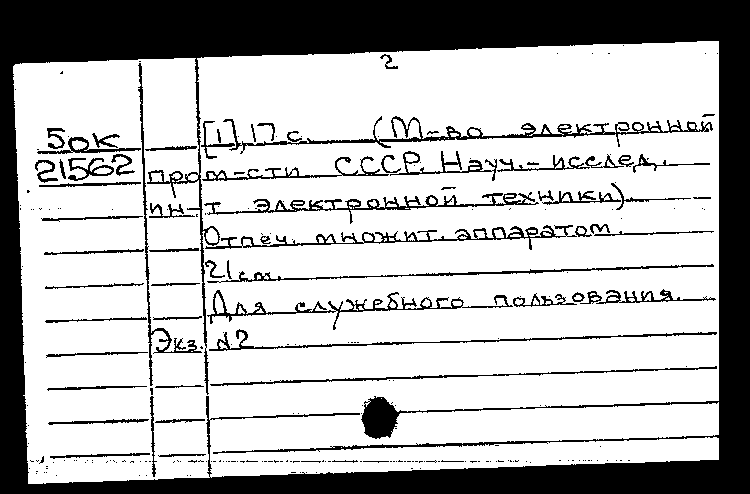 2
5ок [1], 17 с. (М-во электронной
21562 пром-сти СССР. Науч.-исслед.
ин-т электронной техники)
Отпеч. множит. аппаратом.
21 см.
Для служебного пользования.
Экз. №2